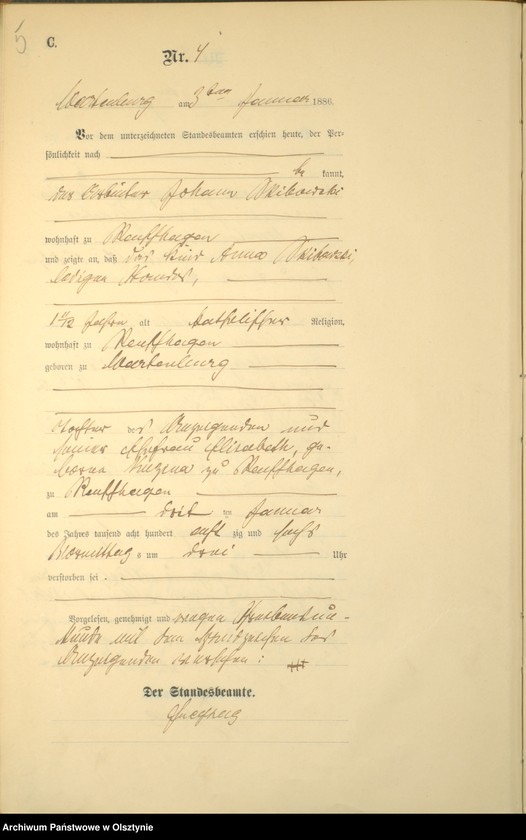 5
C.
Nr. 4
Wartenburg am 3ten Januar 1886.
Vor dem unterzeichneten Standesbeamten erschien heute, der Per-
sönlichkeit nach
be kannt,
der Arbeiter Johann Skibowski
wohnhaft zu
und zeigte an, daß das Kind Anna
ledigen Standes,
1 11/12 Jahre alt katholischer Religion,
wohnhaft zu
geboren zu Wartenburg
Tochter des Anzeigenden und
seiner Ehefrau Elisabeth, ge-
borene zu
zu
am drit ten Januar
des Jahres tausend acht hundert acht zig und sechs
Vormittags um drei Uhr
verstorben sei.
Vorgelesen, genehmigt und wegen Schreibensun-
kunde mit dem Handzeichen des
Anzeigenden versehen: +++
Der Standesbeamte.
Archiwum Państwowe w Olsztynie